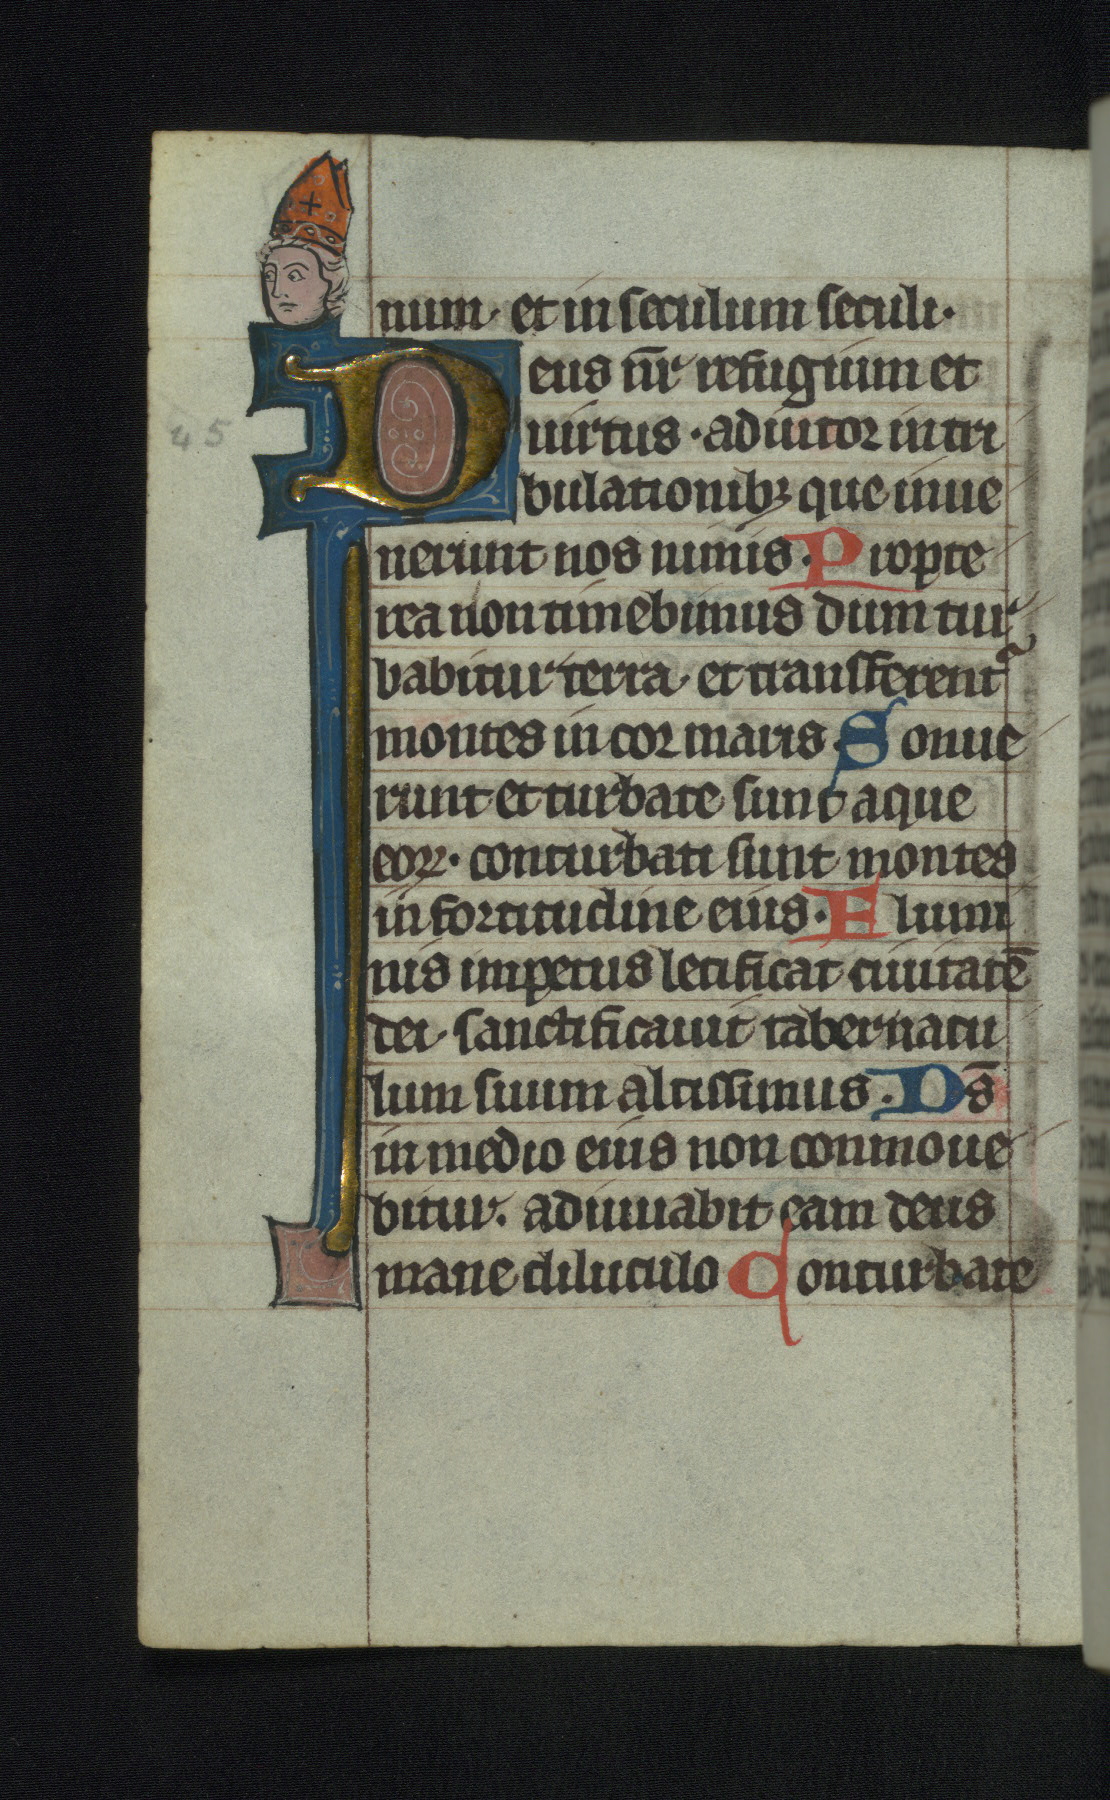 num· et in seculum seculi·
Deus nr̄ refugium et
uirtus· adiutor in tri
45
bulationibꝫ que inue
nerunt nos nimis· Propte
rea non timebimus dum tur
babitur terra· et transferent᷑
montes in cor maris· Sonue
runt et turbate sunt aque
eoꝝ· conturbati sunt montes
in fortitudine eius· Flumi
nis impetus letificat ciuitatē
dei· sanctificauit tabernacu
lum suum altissimus· Ds̄
in medio eius non conmoue
bitur· adiuuabit eam deus
mane diluculo Conturbate